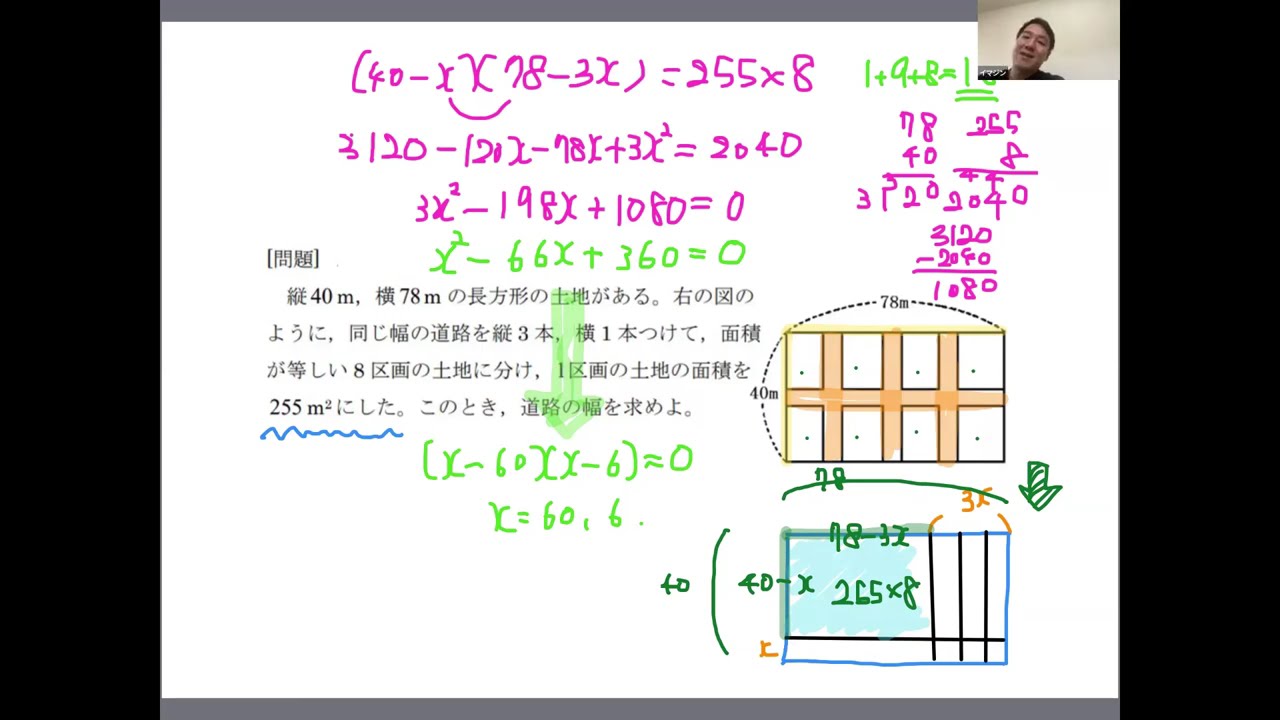 (40-x)(78-3x)=255×8
3120-120x-78x+3x²=2040
3x²-198x+1080=0
x²-66x+360=0
1+9+8=18
78
40
3120
255
8
44
2040
3120
-2040
1080
イマジン
[問題]
縦40m，横78mの長方形の土地がある。右の図の
ように，同じ幅の道路を縦3本，横1本つけて，面積
が等しい8区画の土地に分け，1区画の土地の面積を
255m²にした。このとき，道路の幅を求めよ。
(x-60)(x-6)=0
x=60，6.
78m
40m
78
3x
78-3x
40
40-x
255×8
x